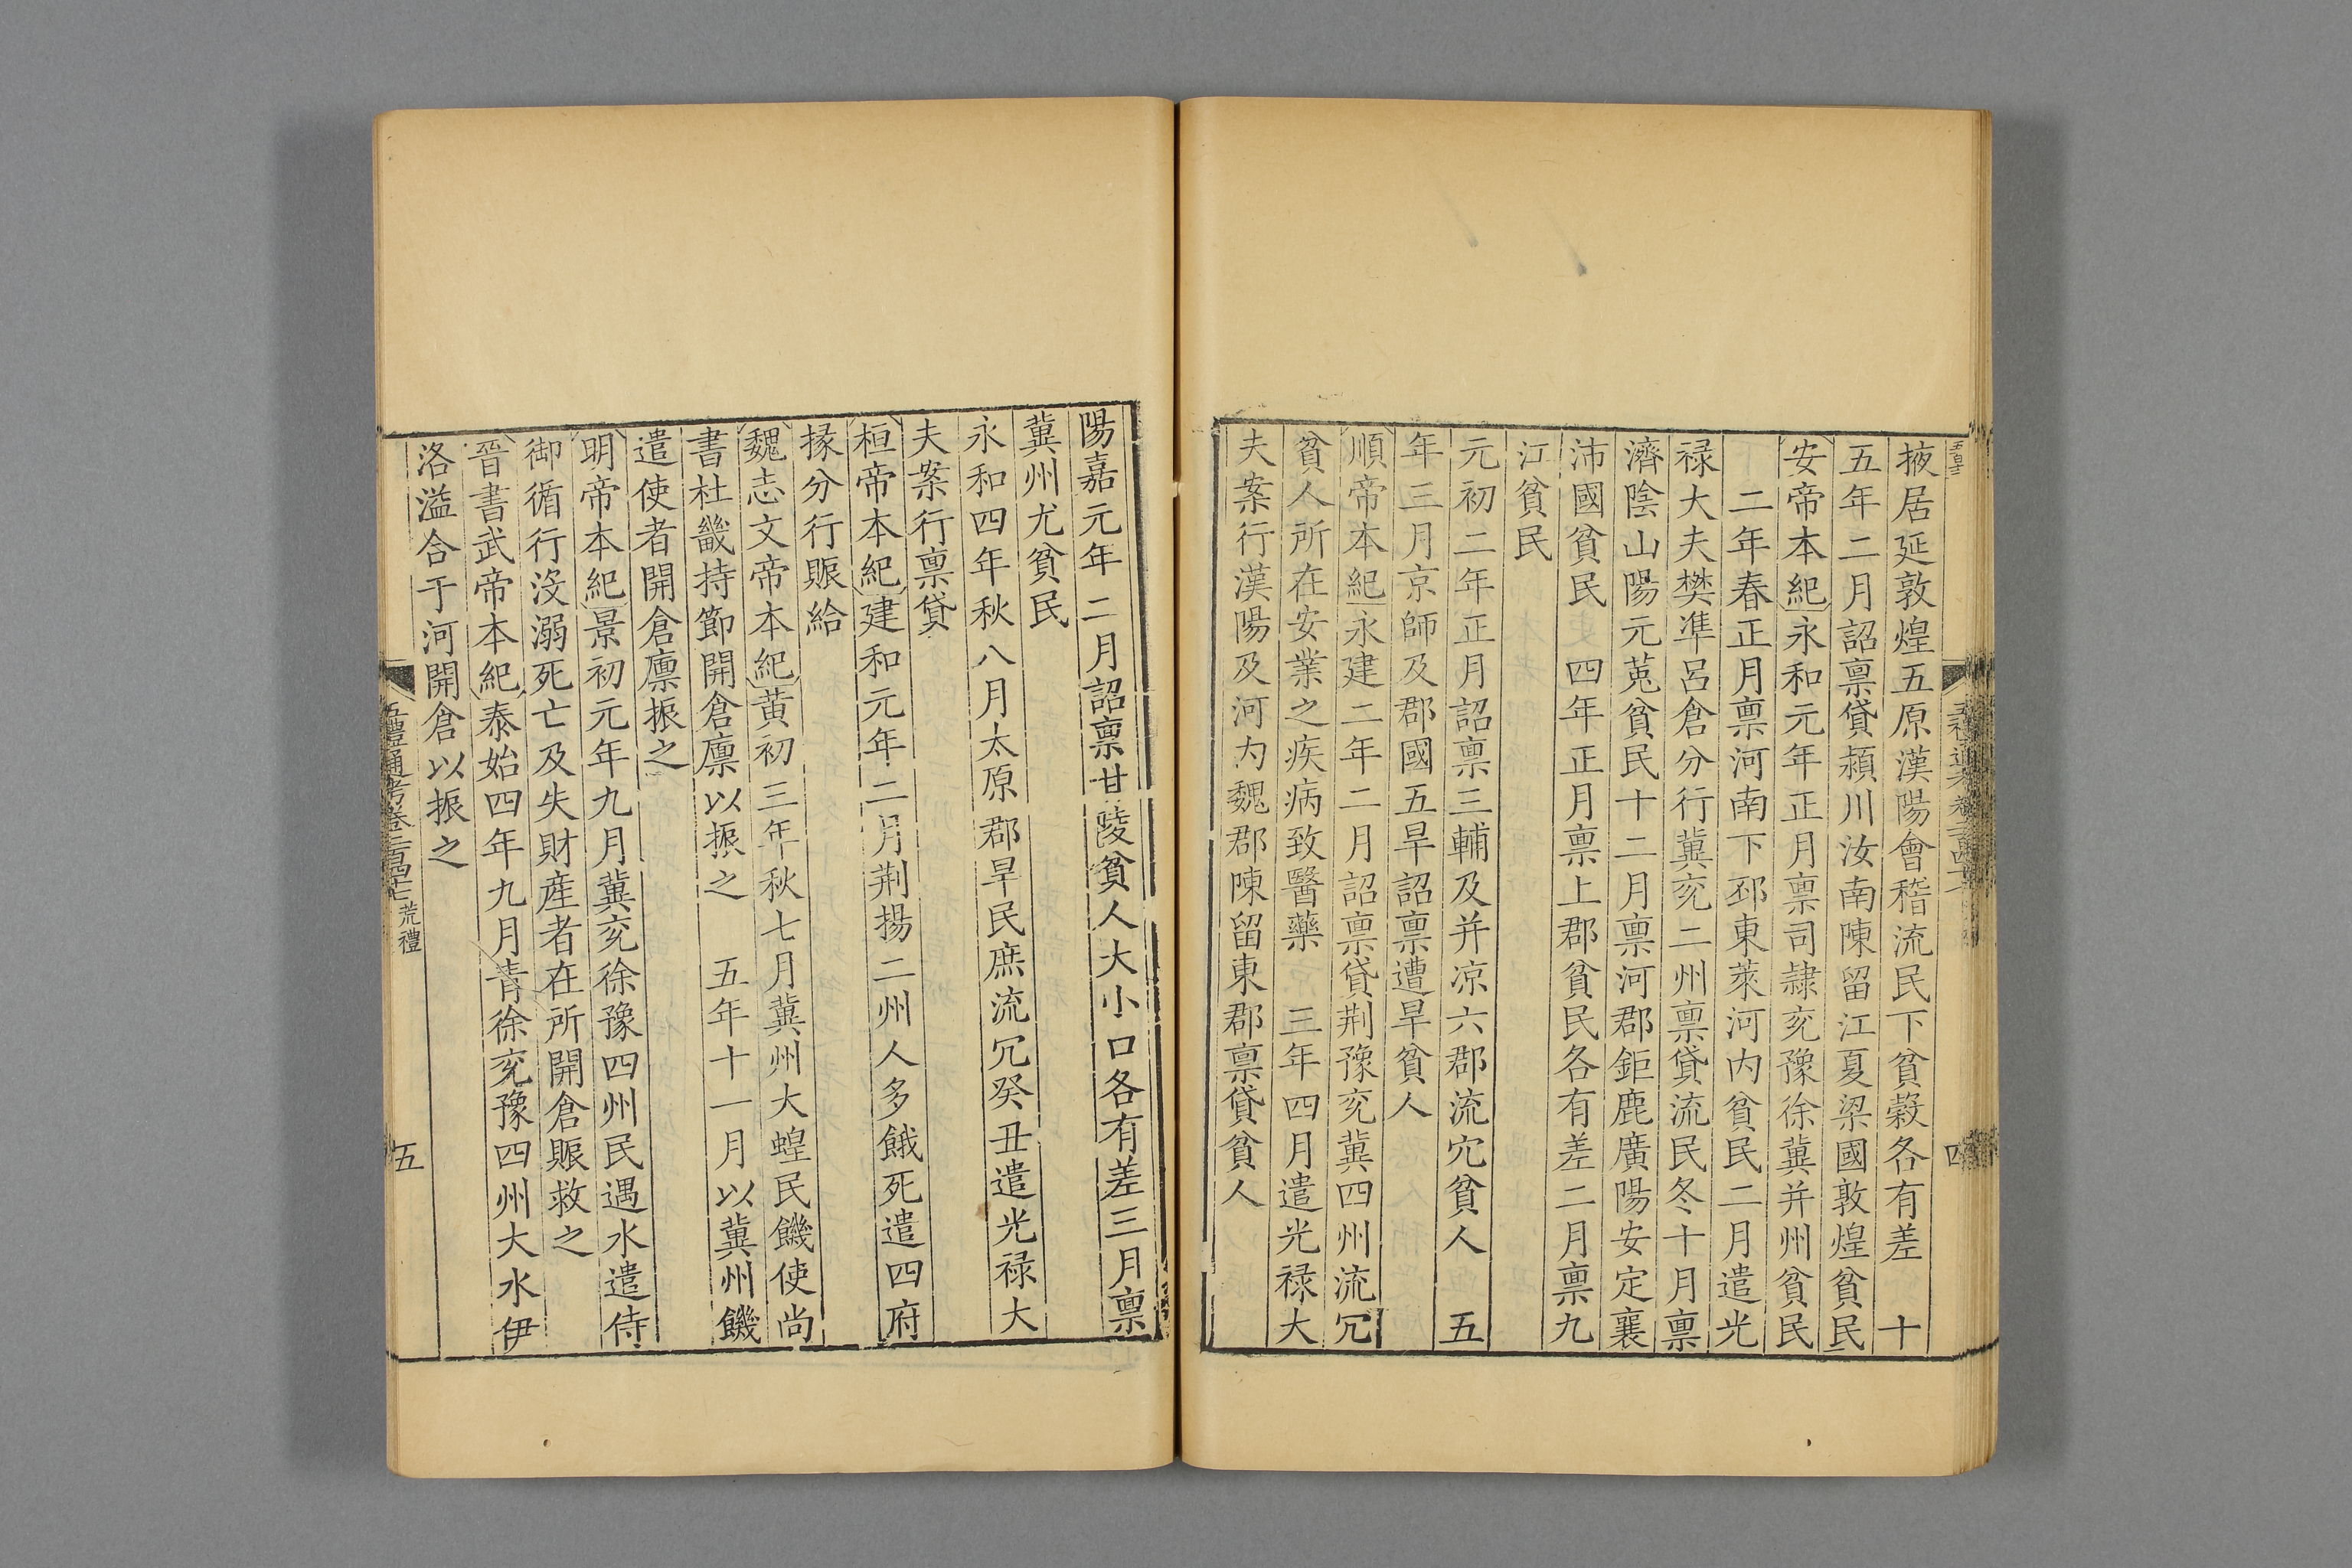 掖居延敦煌五原漢陽會稽流民下貧穀各有差　十
五年二月詔禀貸潁川汝南陳留江夏梁國敦煌貧民
安帝本紀永和元年正月禀司隷兖豫徐冀并州貧民
二年春正月禀河南下邳東萊河内貧民二月遣光
禄大夫樊凖呂倉分行冀兖二州禀貸流民冬十月禀
濟陰山陽元莵貧民十二月禀河郡鉅鹿廣陽安定襄
沛國貧民　四年正月禀上郡貧民各有差二月禀九
江貧民
元初二年正月詔禀三輔及并凉六郡流宂貧人　五
年三月京師及郡國五旱詔禀遭旱貧人
順帝本紀永建二年二月詔禀貸荆豫兖冀四州流冗
貧人所在安業之疾病致醫藥　三年四月遣光禄大
夫案行漢陽及河内魏郡陳留東郡禀貸貧人
四
陽嘉元年二月詔禀甘陵貧人大小口各有差三月禀
冀州尤貧民
永和四年秋八月太原郡旱民庶流冗癸丑遣光禄大
夫案行禀貸
桓帝本紀建和元年二月荆揚二州人多餓死遣四府
掾分行賑給
魏志文帝本紀黄初三年秋七月冀州大蝗民饑使尚
書杜畿持節開倉廪以振之　五年十一月以冀州饑
遣使者開倉廪振之
明帝本紀景初元年九月冀兖徐豫四州民遇水遣侍
御循行沒溺死亡及失財産者在所開倉賑救之
晉書武帝本紀泰始四年九月青徐兖豫四州大水伊
洛溢合于河開倉以振之
五禮通考卷二百四十七　荒禮
五